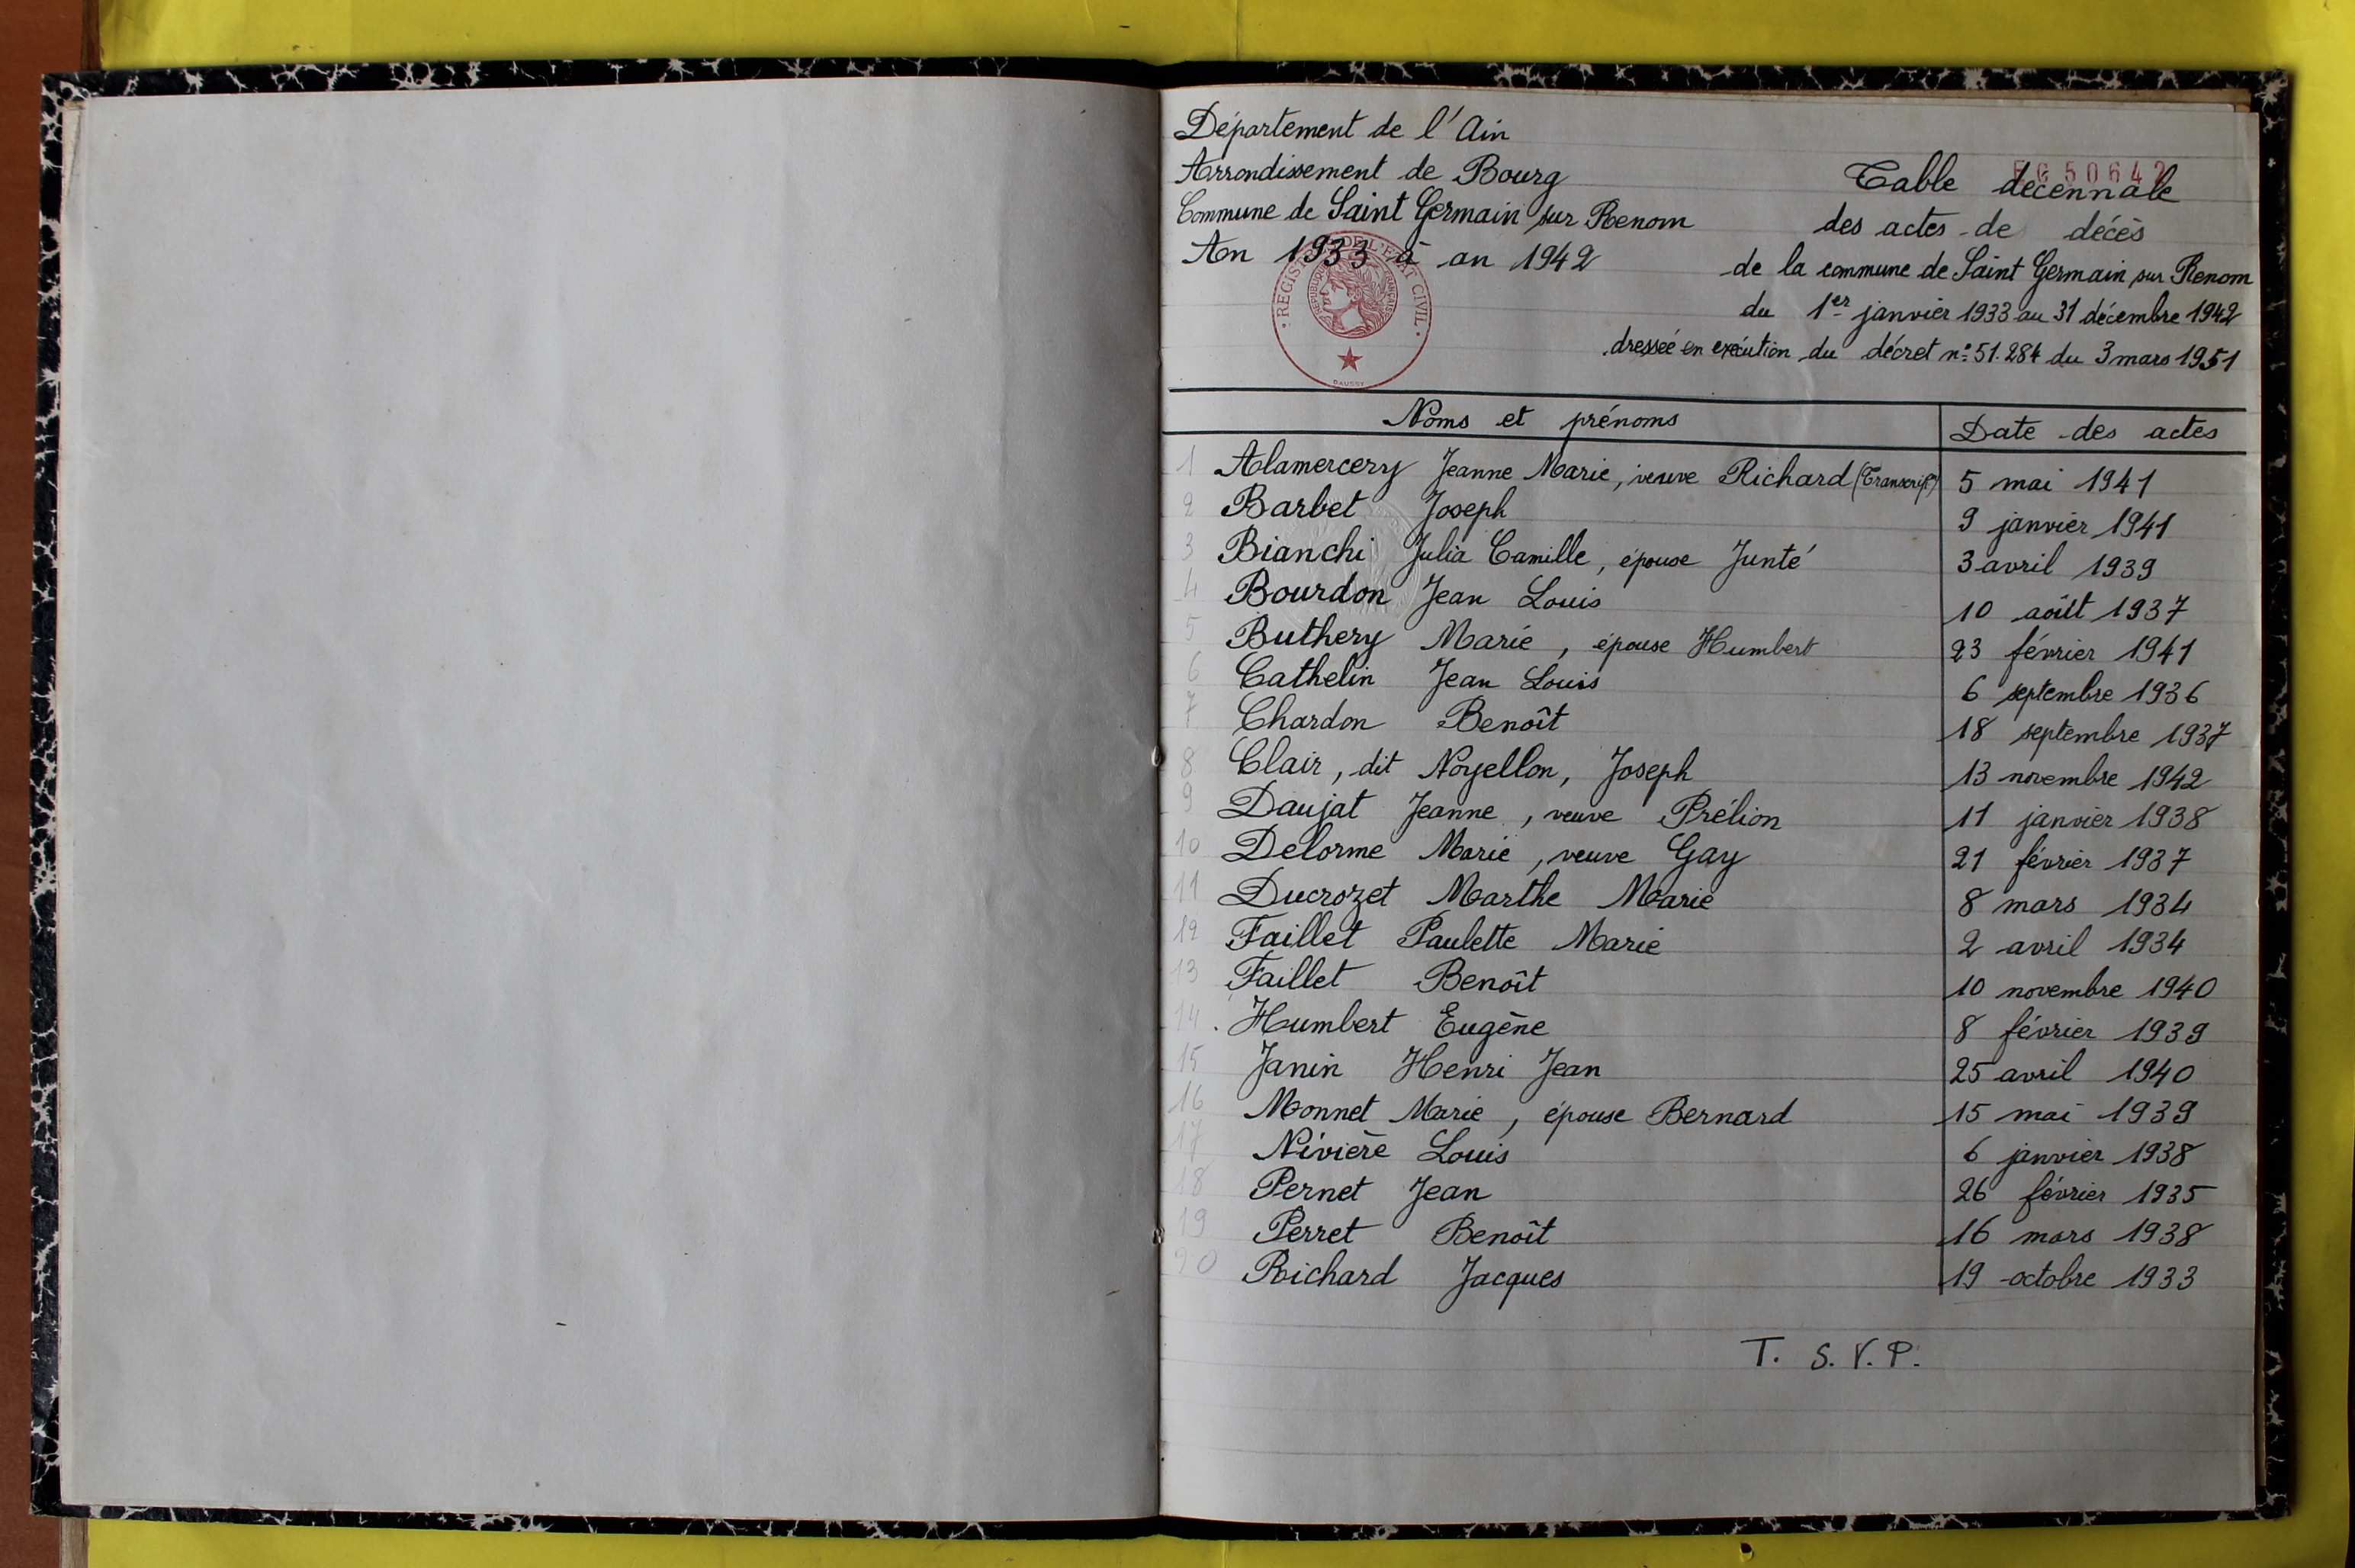 Département de l'Ain
Arrondissement de Bourg
Commune de Saint Germain sur Renom
An 1933 à an 1942
REGISTRES DE L'ETAT CIVIL
REPUBLIQUE FRANÇAISE
DAUSSY
Table décennale
des actes de décès
de la commune de Saint Germain sur Renom
du 1er janvier 1933 au 31 décembre 1942
dressée en exécution du décret n° 51.284 du 3 mars 1951
Noms et prénoms Date des actes
1 Alamercery Jeanne Marie, veuve Richard (Transcript°) 5 mai 1941
2 Barbet Joseph 9 janvier 1941
3 Bianchi Julia Camille, épouse Junté 3 avril 1939
4 Bourdon Jean Louis 10 août 1937
5 Buthery Marie, épouse Humbert 23 février 1941
6 Cathelin Jean Louis 6 septembre 1936
7 Chardon Benoît 18 septembre 1937
8 Clair, dit Noyellon, Joseph 13 novembre 1942
9 Daujat Jeanne, veuve Prélion 11 janvier 1938
10 Delorme Marie, veuve Gay 21 février 1937
11 Ducrozet Marthe Marie 8 mars 1934
12 Faillet Paulette Marie 2 avril 1934
13 Faillet Benoît 10 novembre 1940
14 Humbert Eugène 8 février 1939
15 Janin Henri Jean 25 avril 1940
16 Monnet Marie, épouse Bernard 15 mai 1939
17 Nivière Louis 6 janvier 1938
18 Pernet Jean 26 février 1935
19 Perret Benoît 16 mars 1938
20 Richard Jacques 19 octobre 1933
T. S.V.P.